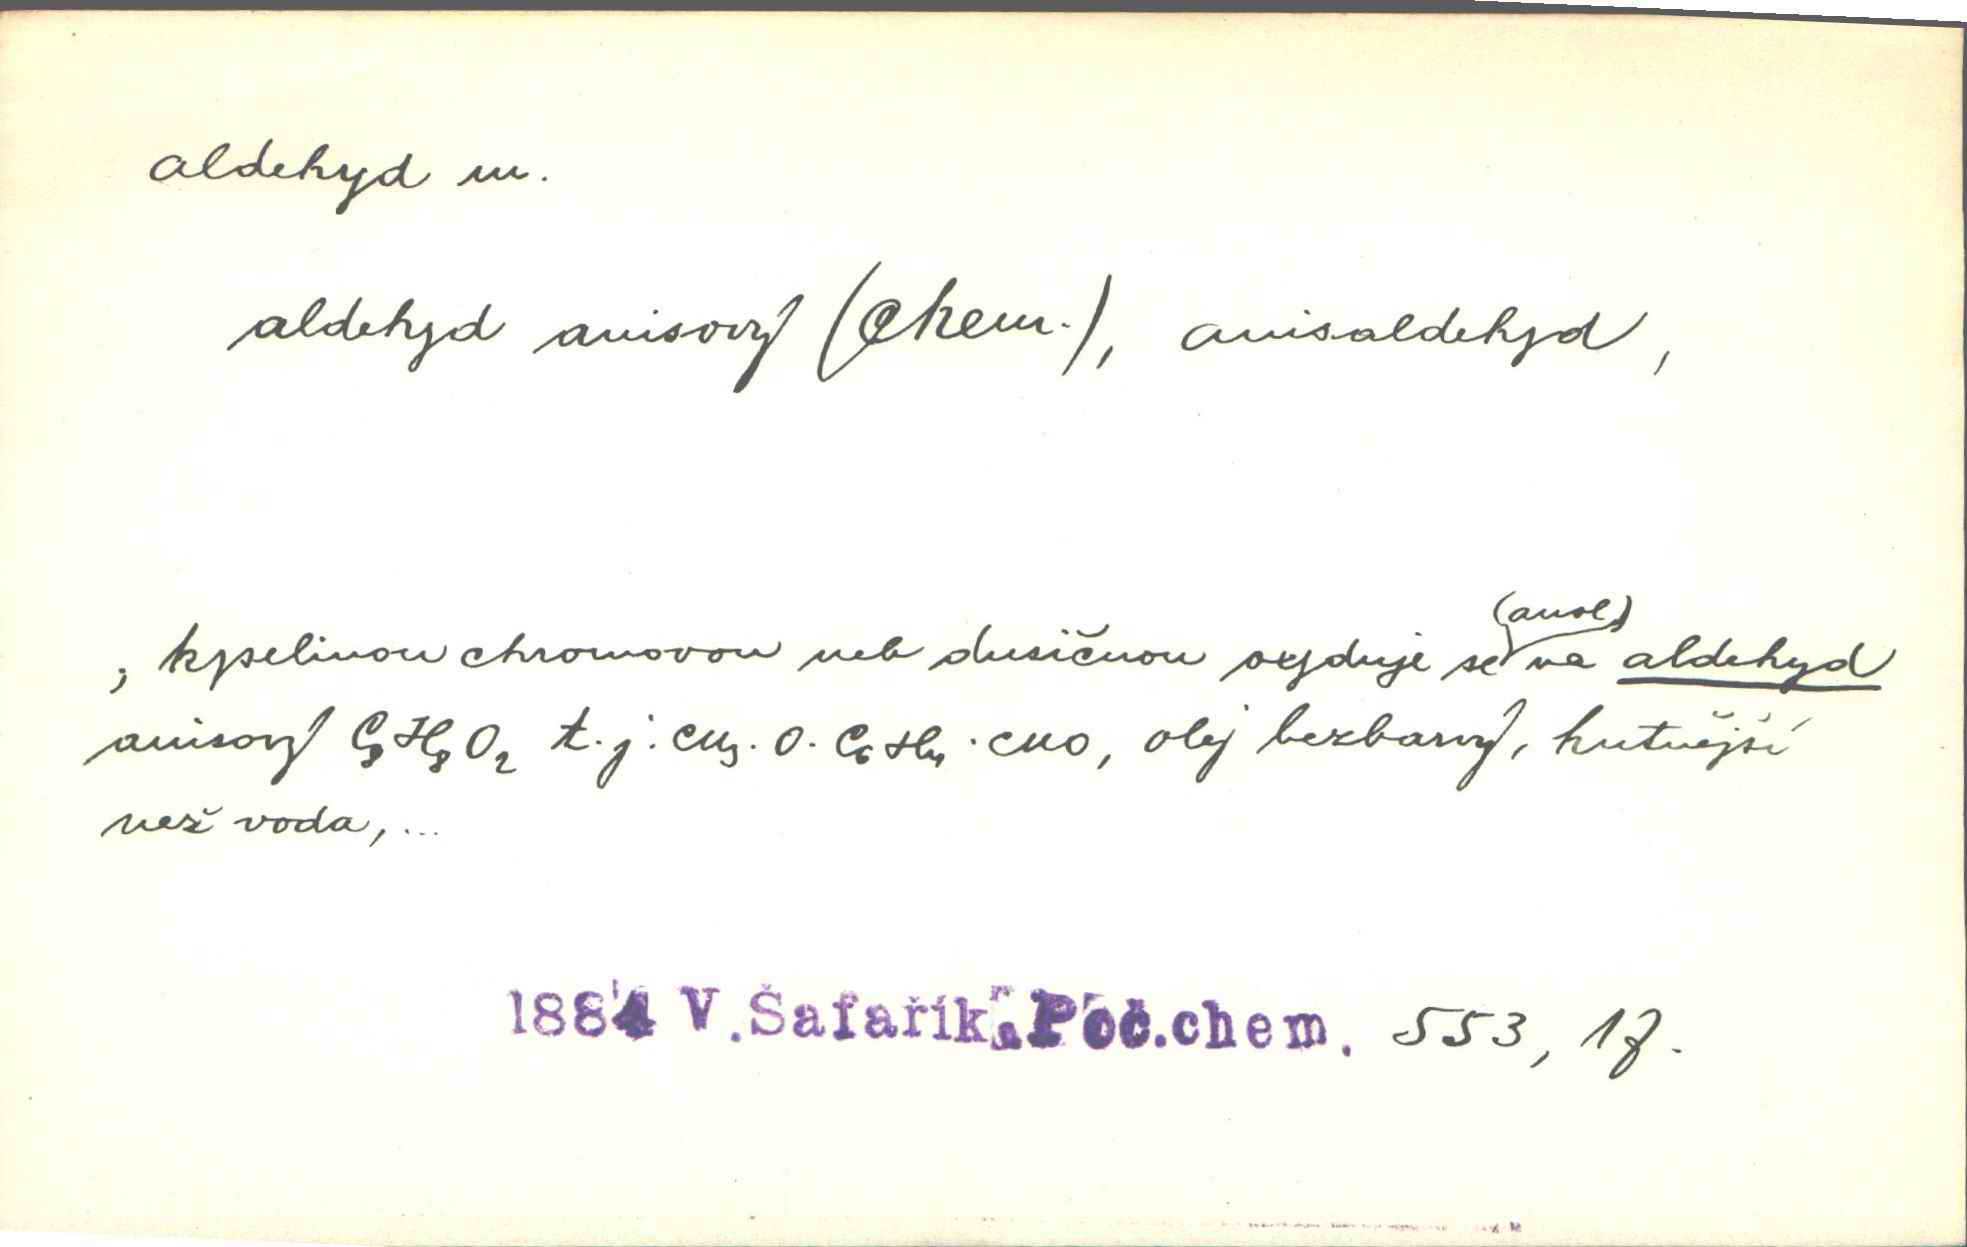 aldehyd m.
aldehyd anisový (Chem.), anisaldehyd,
(anol)
; kyselinou chromovou neb dusičnou oxyduje se na aldehyd
anisový C₈H₈O₂ t. j. CH₃. O. C₆H₄. CHO, olej bezbarvý, hutnější
než voda,...
1884 V. Šafařík, Poč.chem. 553, 1f.